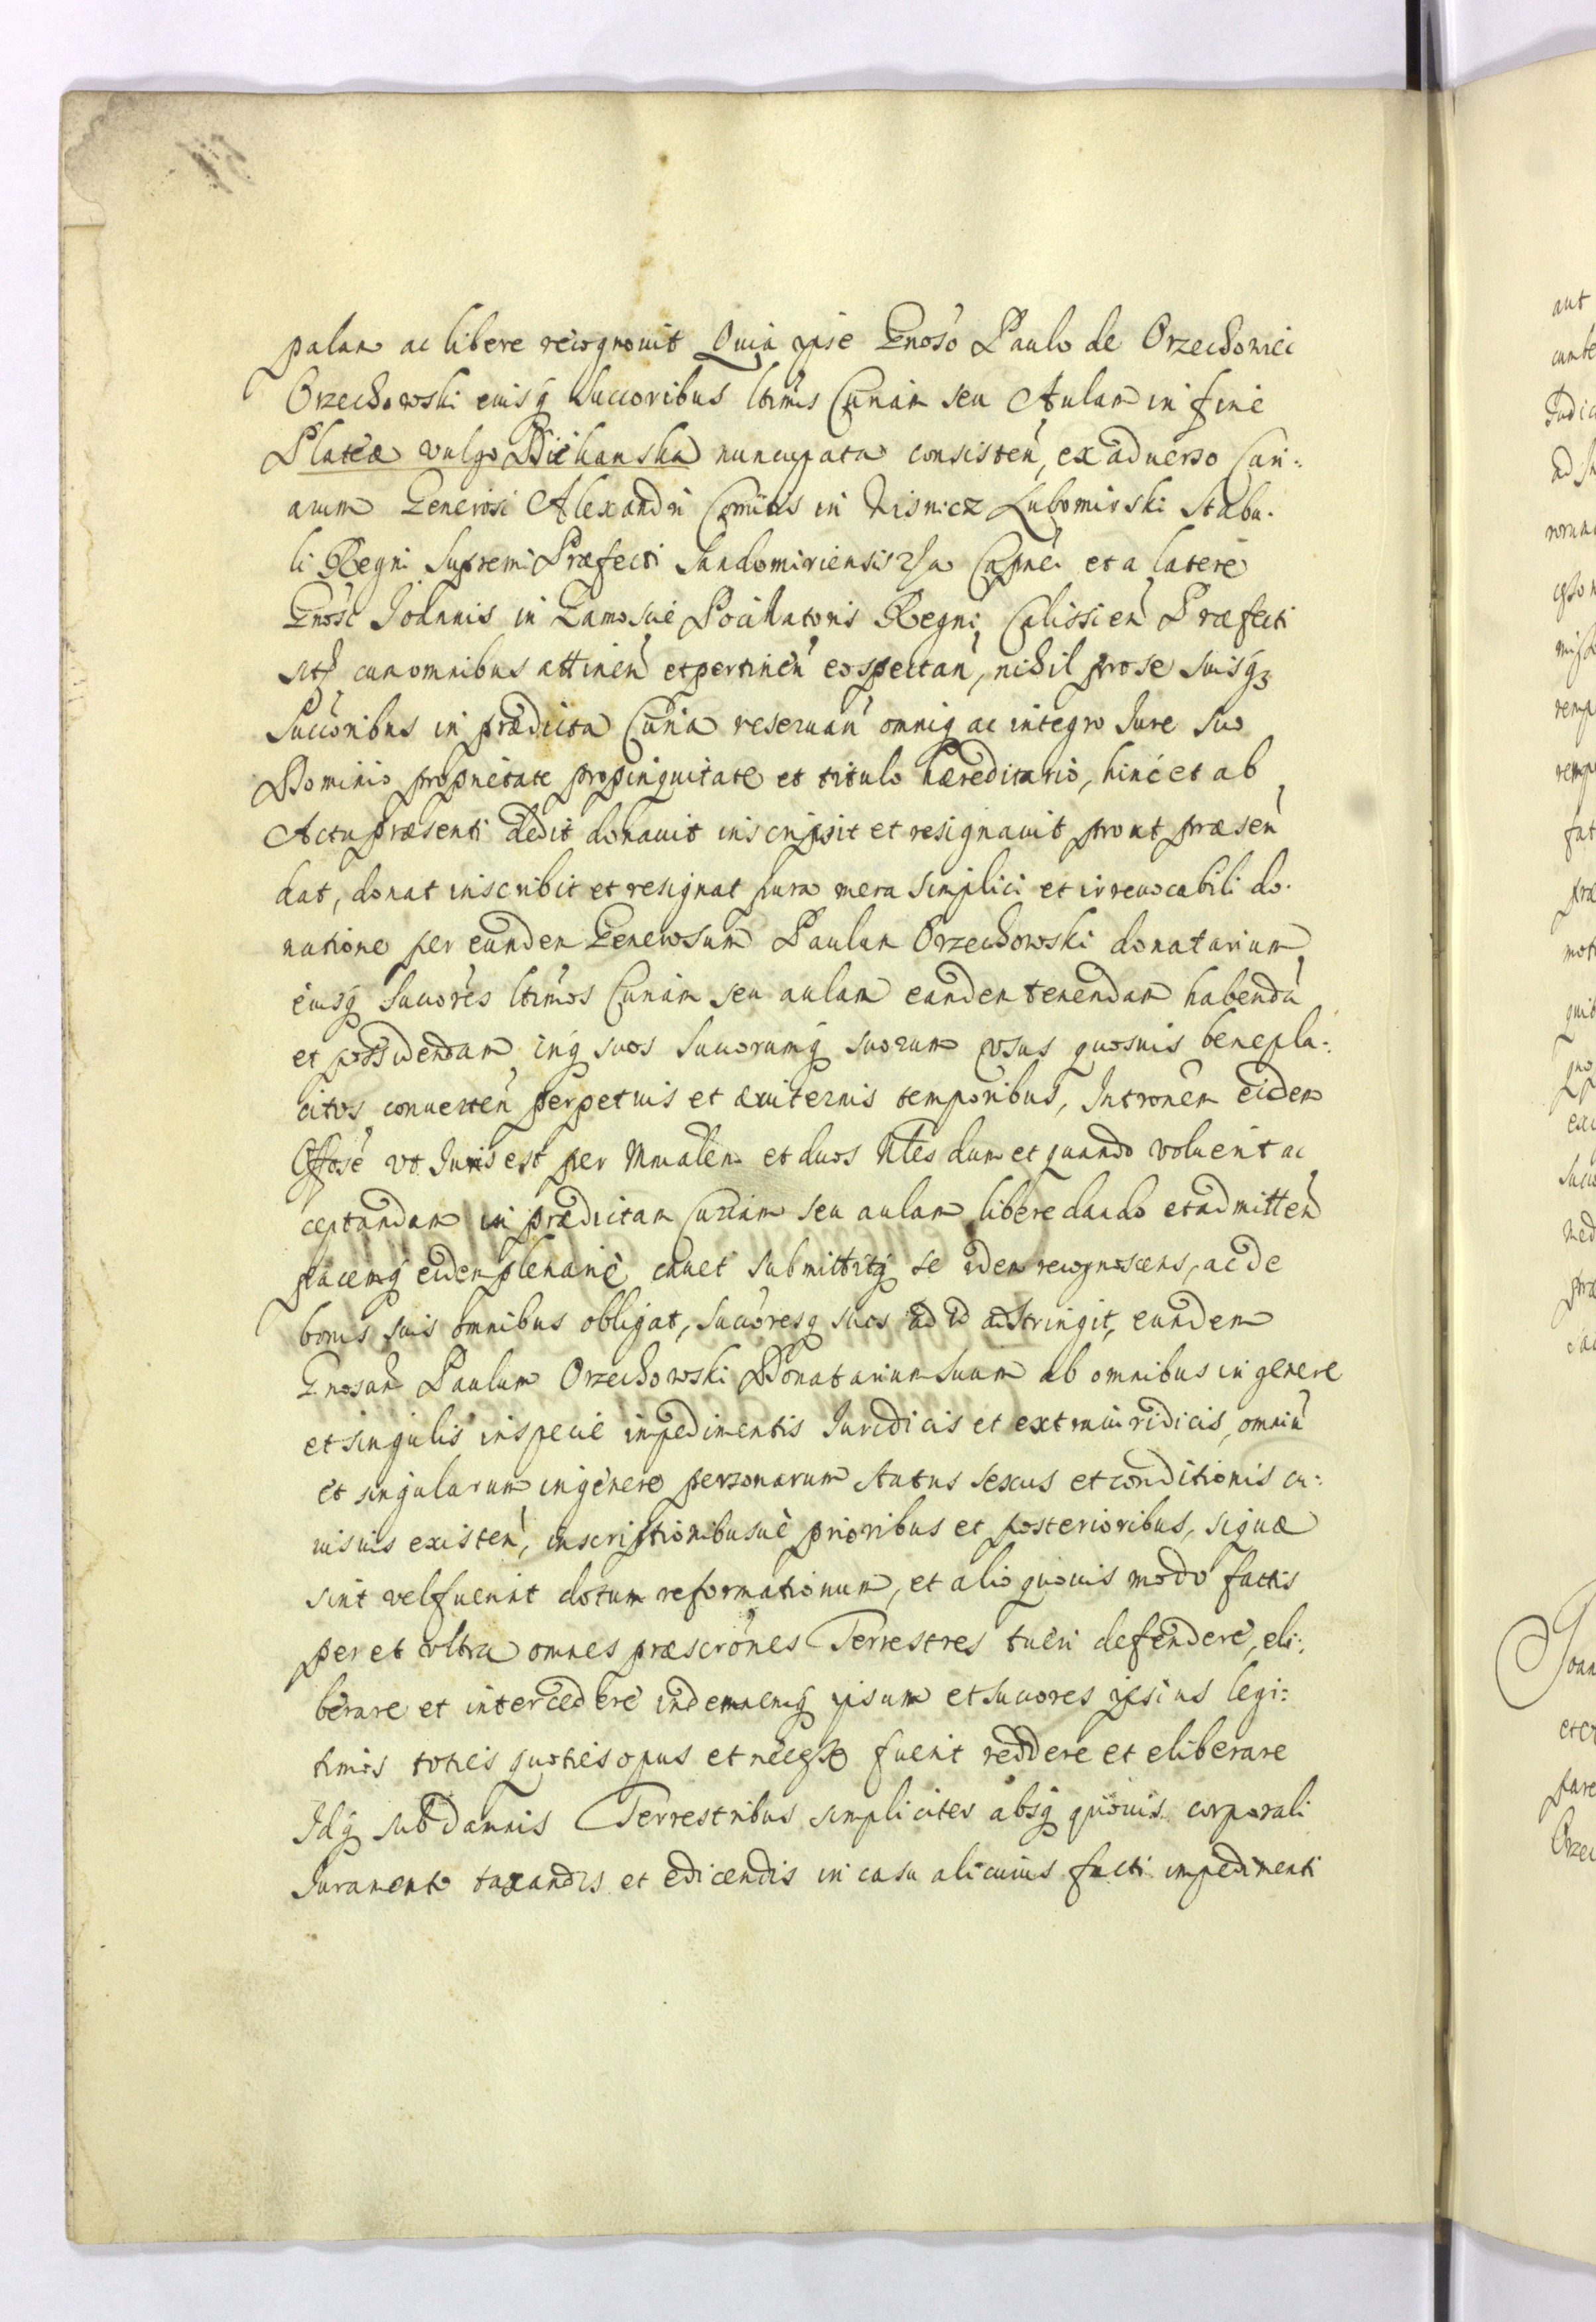 palam ac libere recognovit Quia ipse Gnoso Paulo de Orzechowici
Orzechowski eiusq succoribus ltimis Curiam seu Aulam in fine
Plateæ vulgo Dziekanska nuncupata consisten, ex adverso Curi:
arum Generosi Alexandri Comitis in Wisnicz Lubomirski Stabu.
li Regni Supremi Præfecti Sandomiriensis et a latere
Gnosi Joannis in Zamoscie Pocillatoris Regni, Calissien Præfecti
sit cum omnibus attinen et pertinen eo spectan, nihil pro se suisq
Succoribus in prædicta Curia reservan omniq ac integro Jure suo
Dominio proprietate propinquitate et titulo hæreditario, hinc et ab
Actu præsenti dedit donavit inscripsit et resignavit prout præsen
dat, donat inscribit et resignat pura mera simplici et irrevocabili do.
natione per eundem Generosum Paulum Orzechowski donatarium,
eiusq succores ltimos Curiam seu aulam eandem tenendam habenda
et possidendam, inq suos succorumq suorum usus quosvis benepla:
citos converten perpetuis et æviternis temporibus, Intronem eidem
Offose ut Juris est per Mmalem et duos Nles dum et quando voluerit ac
ceptandam in prædictam Curiam seu aulam libere dando et admitten
pacemq eidem plenarie cavet submittitq se idem recognoscens, ac de
bonis suis omnibus obligat, succoresq suos ad id adstringit, eundem
Gnosum Paulum Orzechowski Donatarium suum ab omnibus in genere
et singulis in specie impedimentis Juridicis et extraiuridicis, omniu
et singularum in genere personarum status sexus et conditionis cu:
iusvis existen, inscriptionibusve prioribus et posterioribus, siquæ
sint vel fuerint dotum reformationum, et alio quovis modo factis
per et ultra omnes præscrones Terrestres tueri defendere, eli:
berare et intercedere indemnemq ipsum et succores ipsius legi:
timos toties quoties opus et necesse fuerit reddere et eliberare
Idq sub damnis Terrestribus simpliciter absq quovis corporali
Juramento taxandis et edicendis in casu alicuius facti impedimenti